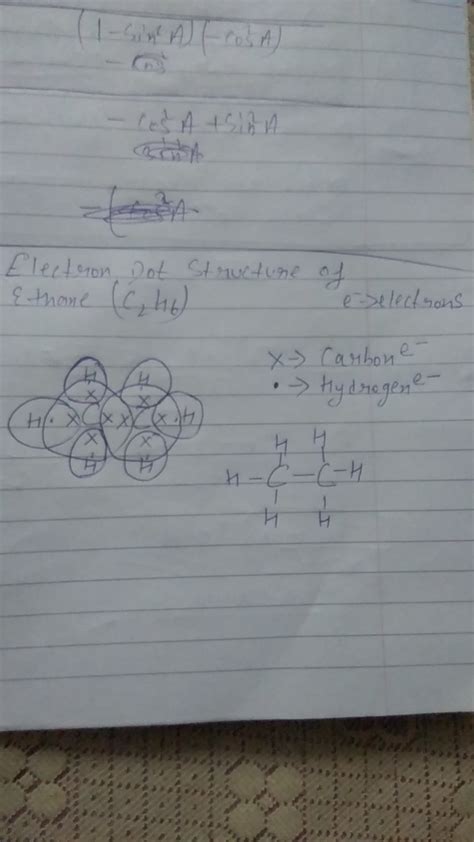 (1 - Sin²A) (- Cos²A)
- Cos²
- Cos²A + Sin²A
Electron Dot Structure of
Ethane (C₂H₆) e⁻→electrons
X → Carbon e⁻
• → Hydrogen e⁻
H H
X X
H • X C X X C X • H
X X
H H
H H
H - C - C - H
H H